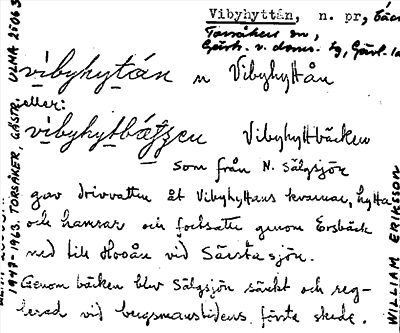 Vibyhyttån, n. pr,
Torsåkers sn,
Gästr. v. doms. hg, Gävl. la
vibyhytån n Vibyhyttån
eller:
vibyhytbätzen Vibyhyttbäcken
som från N. Sälgsjön
gav drivvatten åt Vibyhyttans kvarnar, hytta
och hamrar och fortsatte genom Ersbäck
ned till Hoån vid Särstasjön.
Genom bäcken blev Sälgsjön sänkt och reg-
lerad vid bergsmanstidens förste skede.
1947-1963. TORSÅKER, GÄSTR. ULMA 25063
WILLIAM ERIKSSON